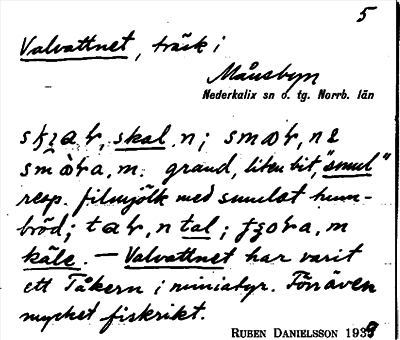 5
Valvattnet, träsk i
Månsbyn
Nederkalix sn o. tg. Norrb. län
skal, n;
m. grand, liten bit, "smul"
resp. filmjölk med smulat hunn-
bröd; n tal; m
käle. — Valvattnet har varit
ett Tåkern i miniatyr. Förr även
mycket fiskrikt.
RUBEN DANIELSSON 1939